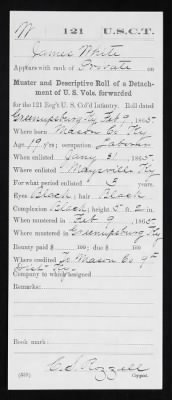 W 121 U.S.C.T.
James White
Appears with rank of Private on
Muster and Descriptive Roll of a Detach-
ment of U. S. Vols. forwarded
for the 121 Reg't U. S. Col'd Infantry. Roll dated
Greenupsburg, Ky Feb 9, 1865.
Where born Mason Co Ky
Age 19 y'rs; occupation Laborer
When enlisted Jany 31, 1865.
Where enlisted Maysville Ky
For what period enlisted 3 years.
Eyes Black; hair Black
Complexion Black; height 5 ft. 2 in.
When mustered in Feb 9, 1865.
Where mustered in Greenupsburg, Ky
Bounty paid $ 100; due $ 100
Where credited Mason Co 9th
Dist Ky.
Company to which assigned
Remarks:
Book mark:
C. S. Rozzell
(339) Copyist.